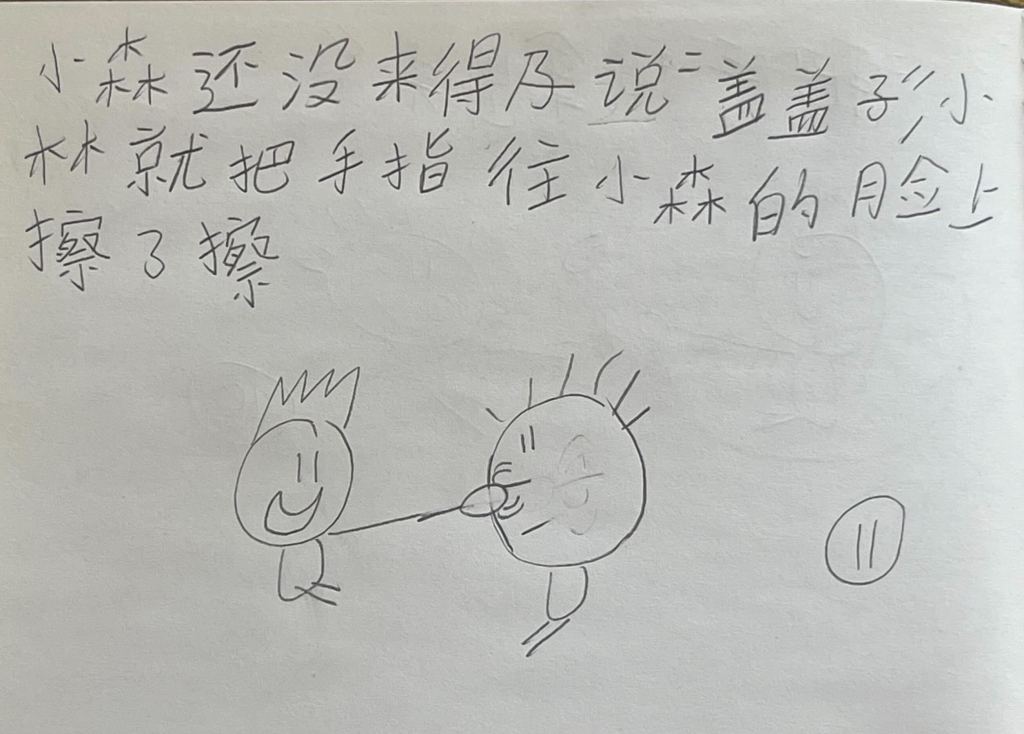 小森还没来得及说“盖盖子”,小
林就把手指往小森的脸上
擦了擦
11